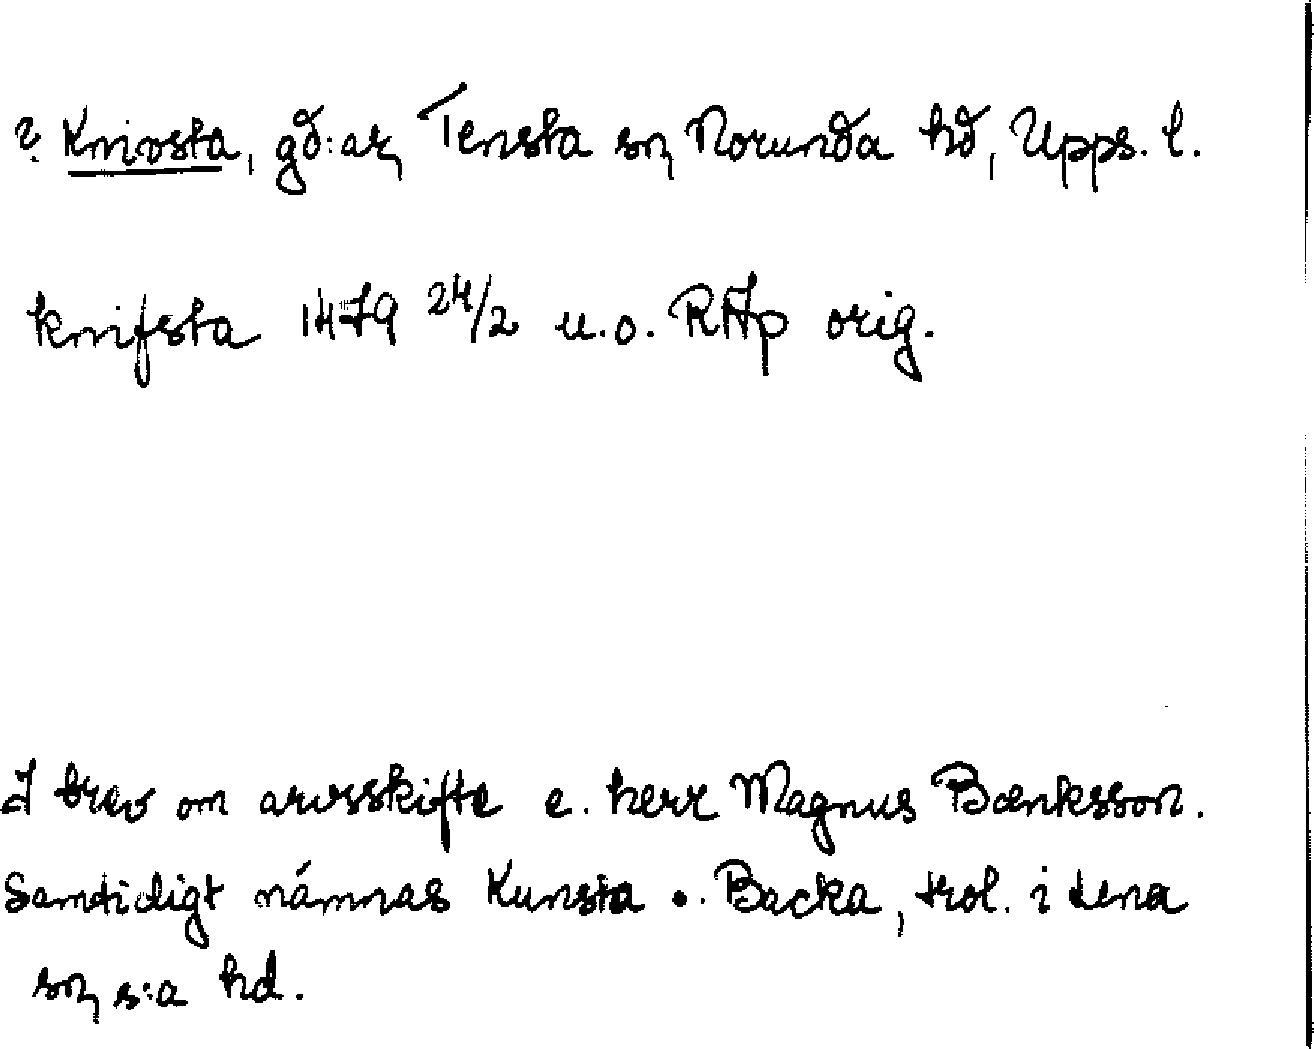 ? Knivsta, gd:ar, Tensta sn, Norunda hd, Upps. l.
knifsta 1479 24/2 u.o. RAp orig.
I brev om arvsskifte e. herr Magnus Bænksson.
Samtidigt nämnas Kunsta o. Backa, trol. i Lena
sn, s:a hd.